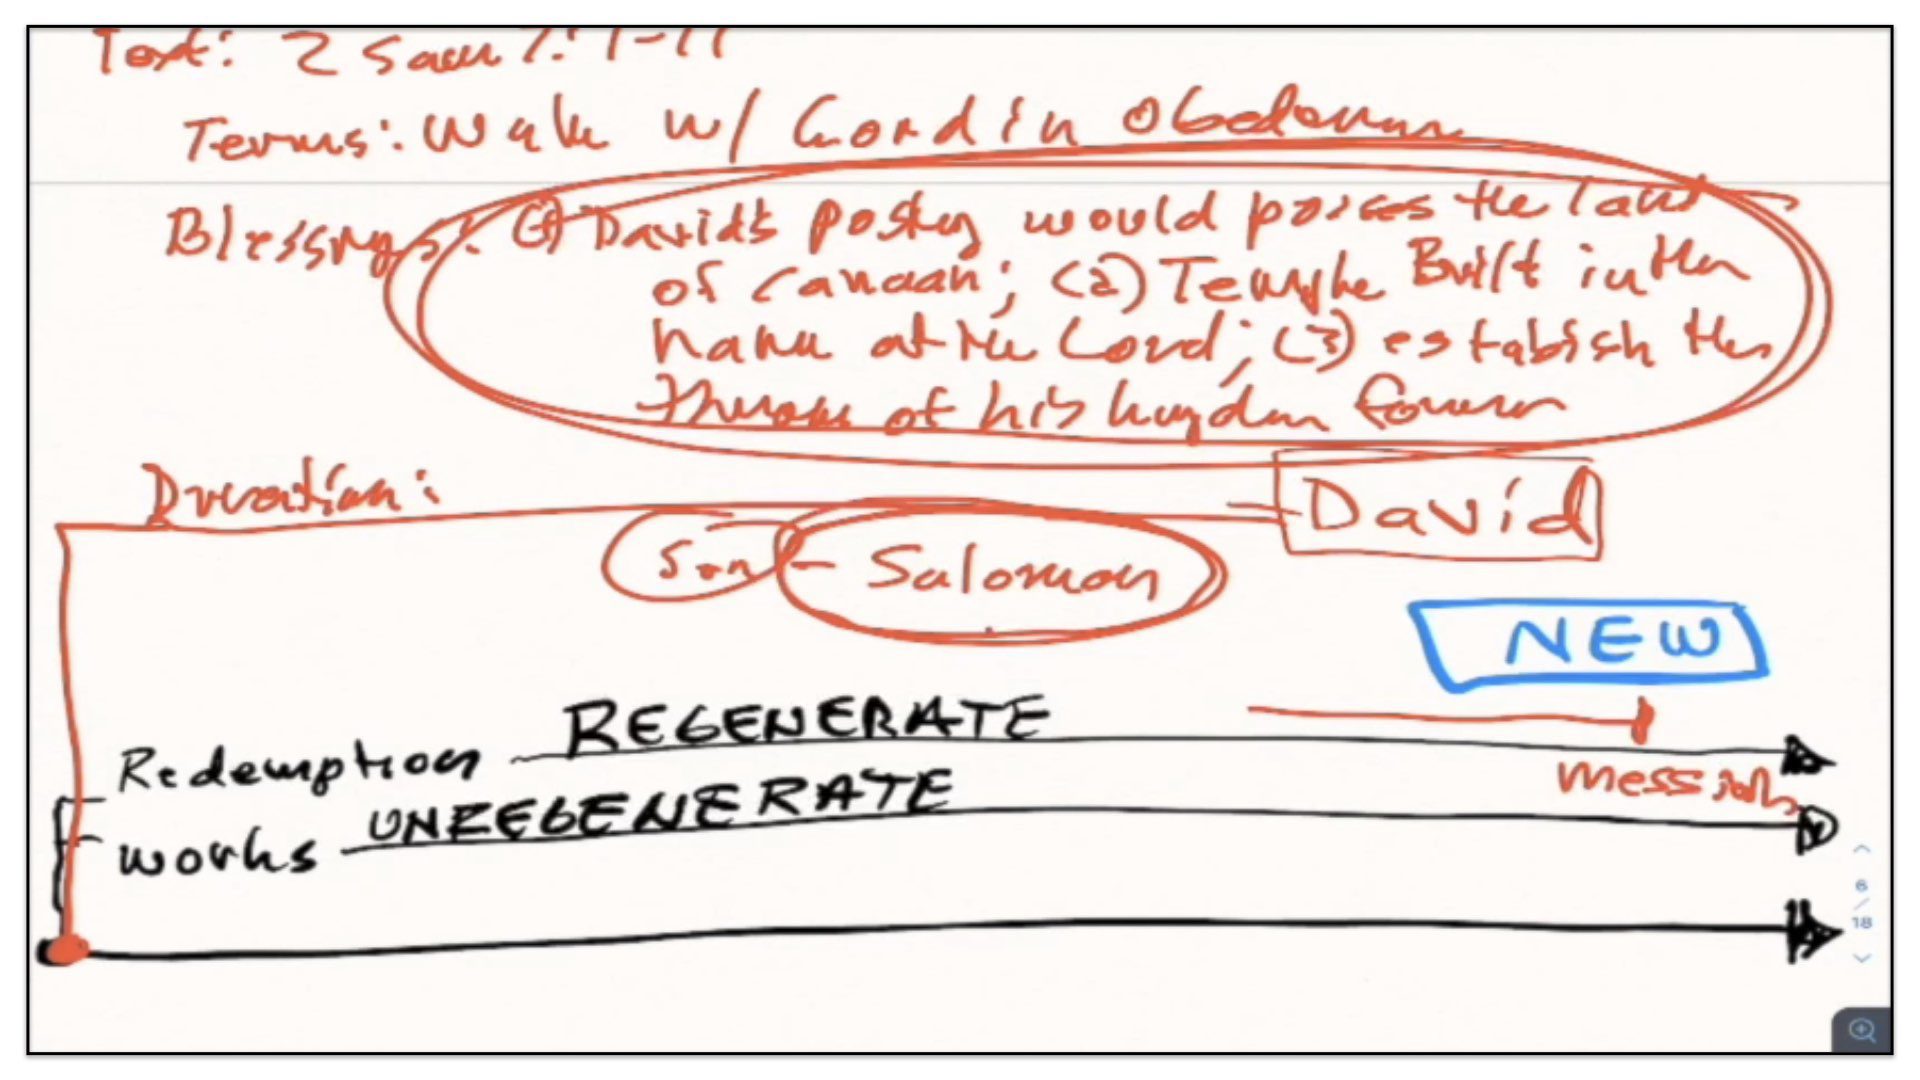 Text: 2 Sam 7: 1-17
Terms: Walk w/ Lord in Obedience
Blessings: (1) David's postery would posses the land
of Canaan; (2) Temple Built in the
name of the Lord; (3) estabish the
throne of his kingdom forever
Duration:
David
Son - Salomon
NEW
REGENERATE
Redemption
messiah
UNREGENERATE
works
6
/
18